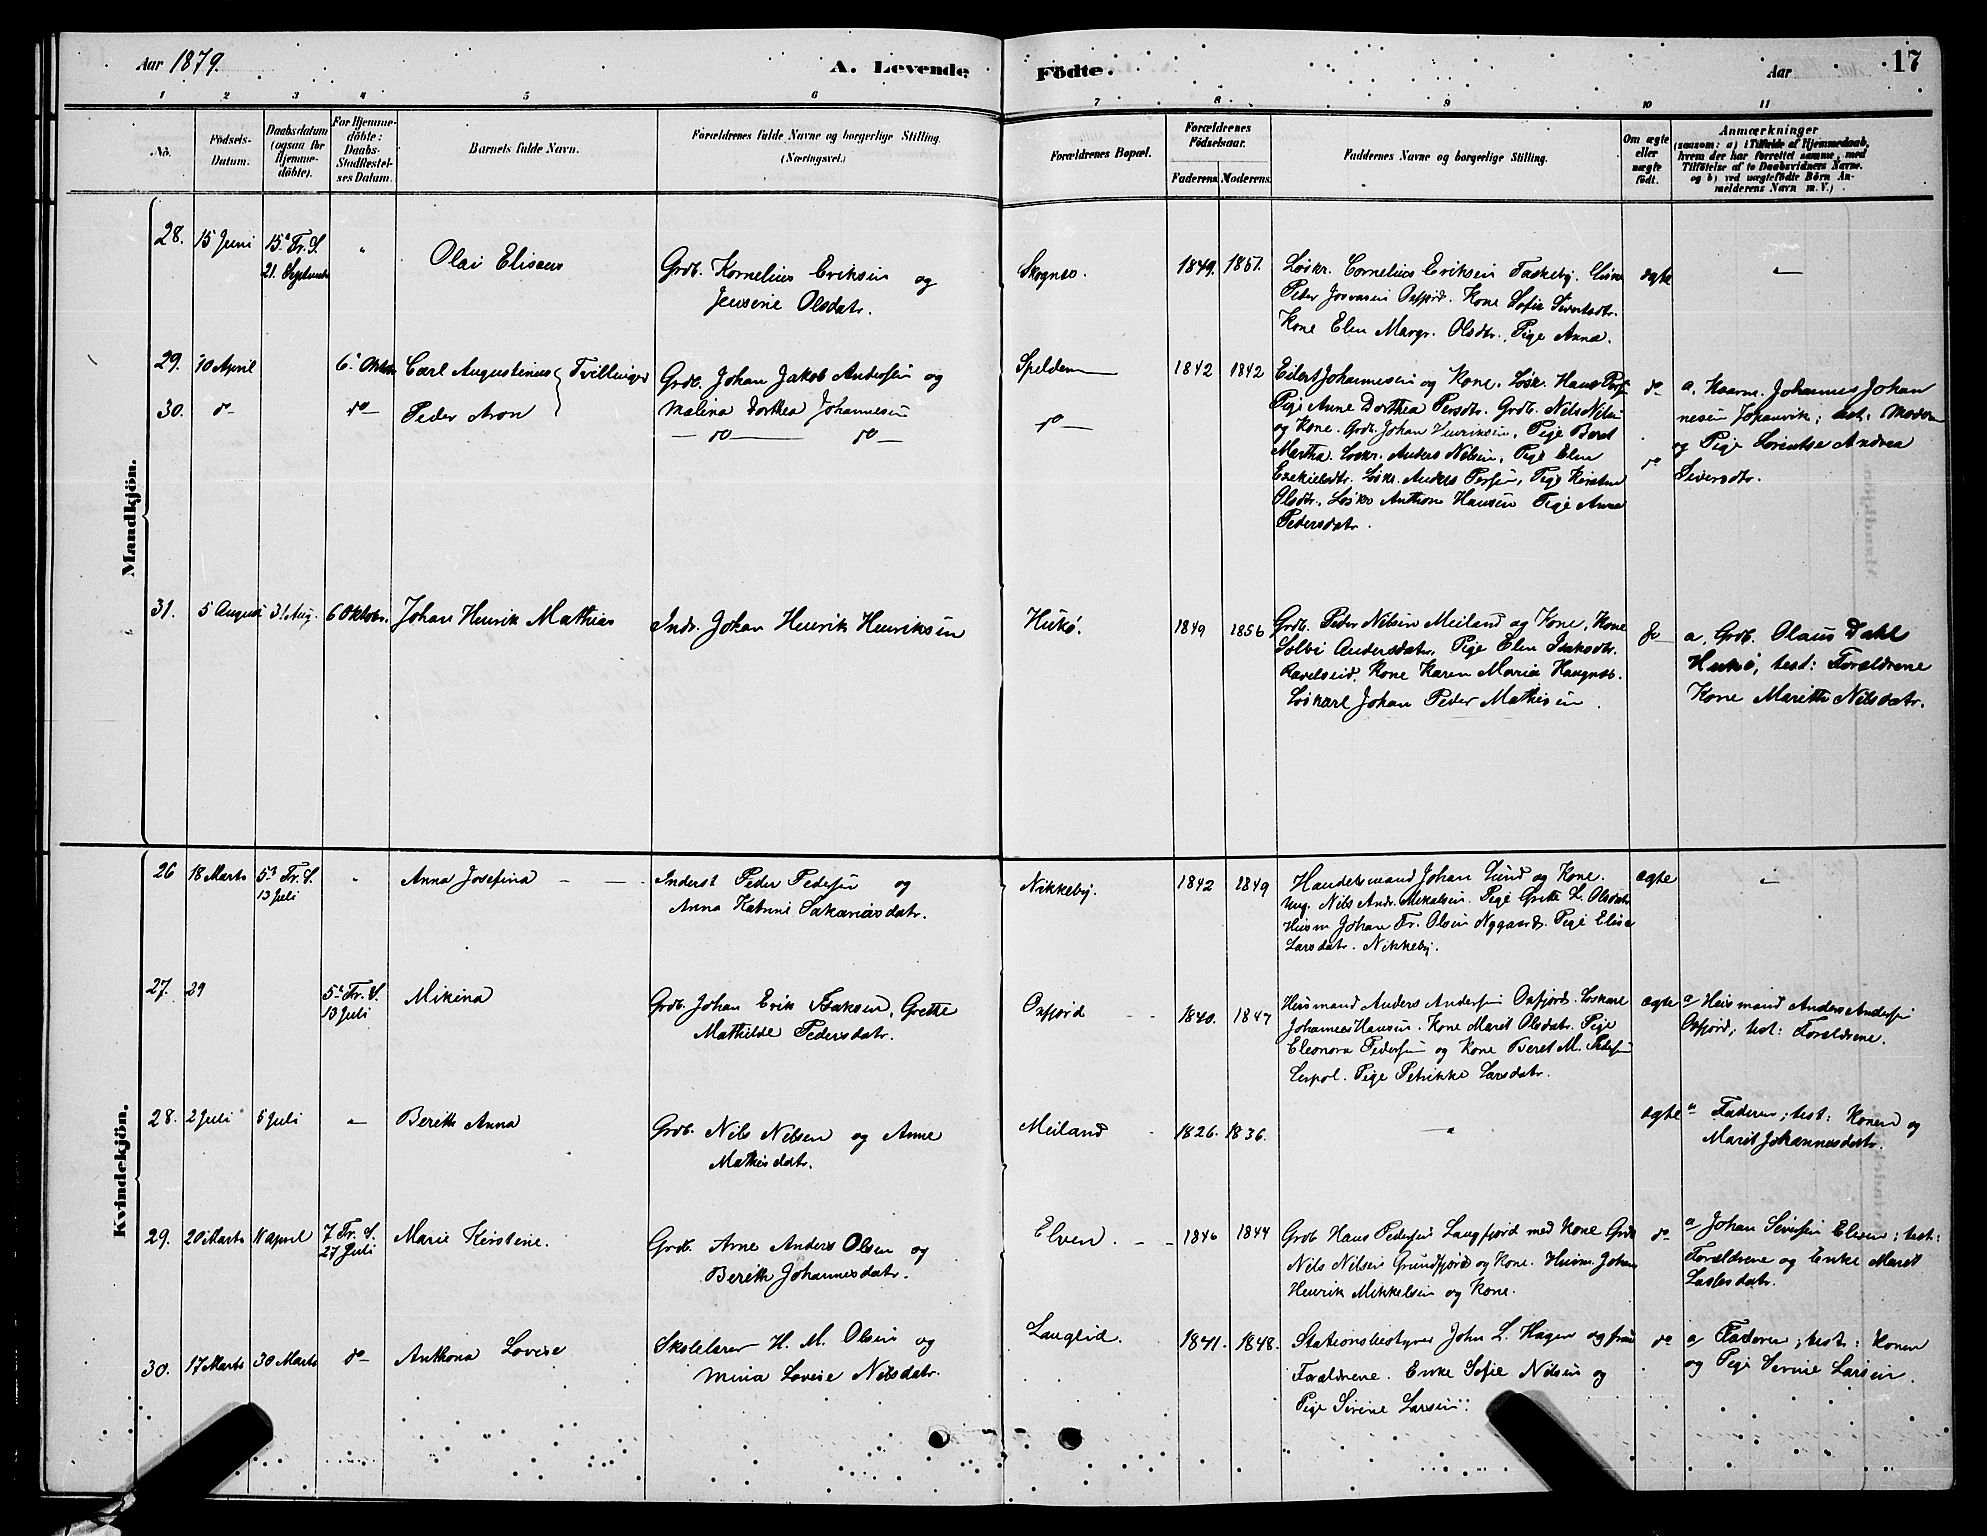 Aar 1879.
A. Levende Födte.
Aar
17
1 2 3 4 5 6 7 8 9 10 11
No.
Födsels-
Datum.
Daabsdatum
(ogsaa for
Hjemme-
döbte).
For Hjemme-
döbte:
Daabs-
Stadfæstel-
ses Datum.
Barnets fulde Navn.
Forældrenes fulde Navne og borgerlige Stilling.
(Næringsvei.)
Forældrenes Bopæl.
Forældrenes
Födselsaar.
Faderens. Moderens.
Faddernes Navne og borgerlige Stilling.
Om ægte
eller
uægte
födt.
Anmærkninger
(saasom: a) i Tilfælde af Hjemmedaab,
hvem der har forrettet samme, med
Tilföielse af to Daabsvidners Navne.
og b) ved uægtefödte Börn An-
melderens Navn m. V.)
Mandkjön.
28. 15 Juni 15de Tr. S. " Olai Eliseus
21. Septembr
Grdb. Kornelius Eriksen og
Jensine Olsdatr.
1849. 1857.
Løskr. Cornelius Eriksen
Kone Elen Margr. Olsdtr. Pige Anna.
ægte
29. 10 April 6. Oktbr Carl Augustinus Tvillinger
30. do do Peder Aron
Grdb. Johan Jakob Andersen og
Malina Dorthea Johannesen
do do
Spildern
do
1842 1842
Eilert Johannesen og Kone. Løsk. Hans Pers.
Pige Anne Dorthea Persdtr. Grdb. Nils Nilsen
og Kone. Grdb. Johan Henriksen. Pige Beret
Martha. Løskr. Anders Nilsen, Pige Elen
Ezekielsdtr. Løskr. Anders Persen, Pige Kirstine
Olsdtr. Løskr Anthon Hansen Pige Anne
Pedersdatr.
do
do
a. Johannes Johan
nesen test: Moderen
og Pige Lorentse Andrea
Siversdtr.
31. 5 August 31 Aug. 6 Oktobr. Johan Henrik Mathias
Indr. Johan Henrik Henriksen
Hukø.
1849 1856
Grdb. Peder Nilsen Meiland og Kone, Kone
Solvi Andersdatr, Pige Elen Isaksdtr.
Ravelseid. Kone Karen Maria Haugnæs.
Løskarl Johan Peder Mathisen.
do
a, Grdb. Olaus Dahl
Hukø, test: Forældrene
Kone Marith Nilsdatr.
Kvindekjön.
26 18 Marts 5te Tr. S. " Anna Josefina
13 Juli
Inderst Peder Pedersen og
Anna Katrine Sakariasdatr.
Nikkeby.
1842 1849
Handelsmand Johan Lund og Kone.
Ung. Nils Andr. Mikalsen. Pige Grete L. Olsdatr
Husm Johan Fr. Olsen Nygaard. Pige Elise
Larsdatr. Nikkeby.
ægte
27. 29 5te Tr. S. Mikina
13 Juli
Grdb. Johan Erik Isaksen, Grethe
Mathilde Pedersdatr.
Oxfjord
1840. 1847
Husmand Anders Andersen Oxfjord. Løskarl
Johannes Hansen. Kone Maret Olsdatr. Pige
Eleonora Pedersen og Kone Beret M. Pedersen
Lerpol. Pige Petrikke Larsdatr.
ægte
a Husmand Anders Andersen
Oxfjord; test: Forældrene.
28. 2 Juli 6 Juli " Berith Anna
Grdb. Nils Nilsen og Anne
Mathisdatr.
Meiland
1826. 1836.
"
ægte
a Faderen; test: Konen og
Marit Johannesdatr.
29. 20 Marts 11 April 7 Tr. S. Marie Kirstine.
27 Juli
Grdb. Arne Anders Olsen og
Berith Johannesdatr.
Elven.
1846 1844
Grdb Hans Pedersen Langfjord med Kone Grdb
Nils Nilsen Grundfjord og Kone. Husm. Johan
Henrik Mikkelsen og Kone.
do
a Johan Siversen Elven; test:
Forældrene og Enke Maret
Larsdatr.
30. 17 Marts 30 Marts do Anthona Lovise
Skolelærer H. M. Olsen og
Mina Lovise Nilsdatr.
Langlid.
1841. 1848.
Stationsbestyrer John L. Hagen og frue
Forældrene. Enke Sofie Nilsen og
Pige Serine Larsen.
do
a Faderen; test: Konen
og Pige Serine Larsen.